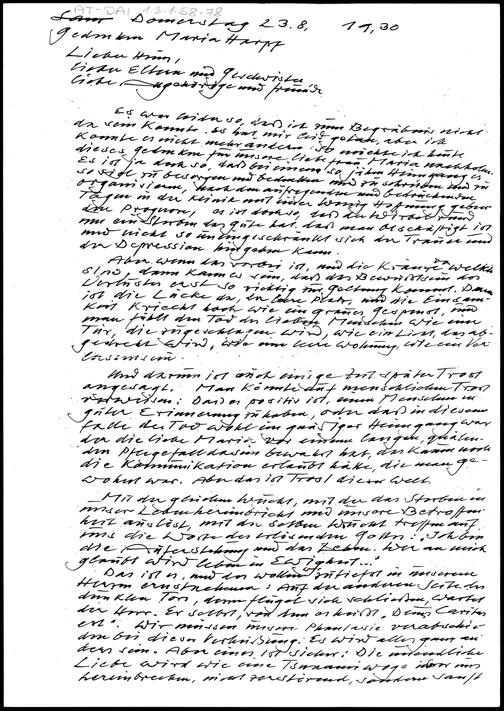 AT-DAI 1.3.1.58.78
Donnerstag 23.8., 19,30
Gedenken Maria Harpf
Lieber Hans,
liebe Eltern und Geschwister
liebe Angehörige und Freunde
Es war leider so, daß ich zum Begräbnis nicht
da sein konnte. Es hat mir leid getan, aber ich
konnte es nicht mehr ändern. So möchte ich heute
dieses Gedenken für unsere liebe Frau Maria nachholen.
Es ist ja doch so, daß bei einem so jähen Heimgang es
so viel zu besorgen und bedenken und zu schreiben und zu
organisieren, nach den aufregenden und bedrückenden
Tagen in der Klinik mit einer wenig Hoffnung gebenden
Prognose, es ist doch so, daß der
und das Gute hat, daß man beschäftigt ist
und nicht so uneingeschränkt sich der Trauer und
der Depression hingeben kann.
Aber wenn das vorbei ist, und die Kränze verwelkt
sind, dann kann es sein, daß das Bewußtsein des
Verlustes erst so richtig zur Geltung kommt. Dann
ist die Lücke da, der leere Platz, und die Einsam-
keit kriecht hoch wie ein graues Gespenst, und
man fühlt den Tod des lieben Menschen wie eine
Tür, die zugeschlagen wird, wie ein Licht, das ab-
gedreht wird, wie eine leere Wohnung, wie ein Ver-
lassensein.
Und darum ist auch einige Zeit später Trost
angesagt. Man könnte auf menschlichen Trost
verweisen: Daß es positiv ist, einen Menschen in
guter Erinnerung zu haben, oder daß in diesem
Falle der Tod wohl ein gnädiger Heimgang war
der die liebe Maria vor einem langen, quälen-
den Pflegefalldasein bewahrt hat, das kaum noch
die Kommunikation erlaubt hätte, die man ge-
wohnt war. Aber das ist Trost dieser Welt.
Mit der gleichen Wucht, mit der das Sterben in
unser Leben hereinbricht und unsere Betroffen-
heit auslöst, mit der selben Wucht treffen auf
uns die Worte des erlösenden Gottes: Ich bin
die Auferstehung und das Leben. Wer an mich
glaubt wird leben in Ewigkeit...
Das ist es, und das wollen zutiefst in unserem
Herzen ernstnehmen: Auf der anderen Seite des
dunklen Tors, dessen Flügel sich schließen, wartet
der Herr. Er selbst, von dem es heißt „Deus Caritas
est“. Wir müssen unsere Phantasie verabschie-
den bei dieser Verheißung. Es wird alles ganz an-
ders sein. Aber eines ist sicher: Die unendliche
Liebe wird wie eine Tsunamiwoge über uns
hereinbrechen, nicht zerstörend, sondern sanft